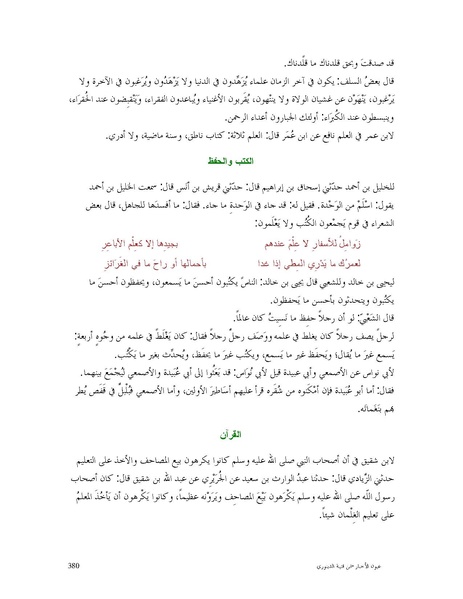 قد صدقتَ وبحق قلدناك ما قلّدناك.
قال بعضُ السلف: يكون في آخر الزمان علماء يُزَهِّدون في الدنيا ولا يَزْهَدُون ويُرَغبون في الآخرة ولا
يَرْغبون، يَنْهَوْن عن غشيان الولاة ولا ينتَهون، يُقَربون الأغنياء ويُباعدون الفقراء، ويَتْقبضون عند الحُقراء،
وينبسطون عند الكُبرَاء؛ أولئك الجبارون أعداء الرحمن.
لابن عمر في العلم نافع عن ابن عُمَر قال: العلم ثلاثة: كتاب ناطق، وسنة ماضية، ولا أدري.
الكتب والحفظ
للخليل بن أحمد حدّثني إسحاق بن إبراهيم قال: حدّثني قريش بن أنَس قال: سمعت الخليل بن أحمد
يقول: اسْلَمْ من الوَحْدة. فقيل له: قد جاء في الوَحدة ما جاء. فقال: ما أفسدَها للجاهل، قال بعض
الشعراء في قوم يَجمْعون الكُتُب ولا يَعْلَمون:
زَوامِلُ للأسفارِ لا عِلْمَ عندهم بجيدِها إلا كعِلْمِ الأباعِر
لعمرُكَ ما يَدْرِي المطِي إذا غدا بأحمالها أو راحَ ما في الغَرَائرِ
ليحيى بن خالد وللشعبي قال يحيى بن خالد: الناسُ يكتُبون أحسنَ ما يَسمعون، ويحفظون أحسنَ ما
يكتُبون ويتحدثون بأحسن ما يَحفظون.
قال الشَعْبي: لو أن رجلاً حفظ ما نَسيتُ كان عالماً.
لرجلٍ يصف رجلاً كان يغلط في علمه ووَصَف رجلٌ رجلاً فقال: كان يَغْلَطُ في علمه من وجُوهٍ أربعة:
يَسمع غيرَ ما يُقال؛ ويَحفَظ غير ما يَسمع، ويكتُب غيرَ ما يحفَظ، ويُحدِّث بغير ما يَكتُب.
لأبي نواس عن الأصمعي وأبي عبيدة قيل لأبي نُوَاس: قد بَعَثُوا إلى أبي عُبَيدة والأصمعي ليُجْمَعَ بينهما.
فقال: أما أبو عُبَيدة فإن أمْكَنوه من سُفَره قرأ عليهم أساطيرَ الأولين، وأما الأصمعي فبُلْبلٌ في قَفَص يُطرِ
بهم بنَغَماته.
القرآن
لابن شقيق في أن أصحاب النبي صلى الله عليه وسلم كانوا يكرهون بيع المصاحف والأخذ على التعليم
حدثني الزَّيادي قال: حدثنا عبدُ الوارث بن سعيد عن الجُرَيْرِي عن عبد الله بن شقيق قال: كان أصحاب
رسول اللّه صلى الله عليه وسلم يَكْرَهون بَيْعَ المصاحف ويَرَوْنه عظيماً، وكانوا يَكْرهون أن يَأخُذَ المعلمُ
على تعليم الغِلْمان شيئاً.
عيون الأخبار-ابن قتيبة الدينوري 380